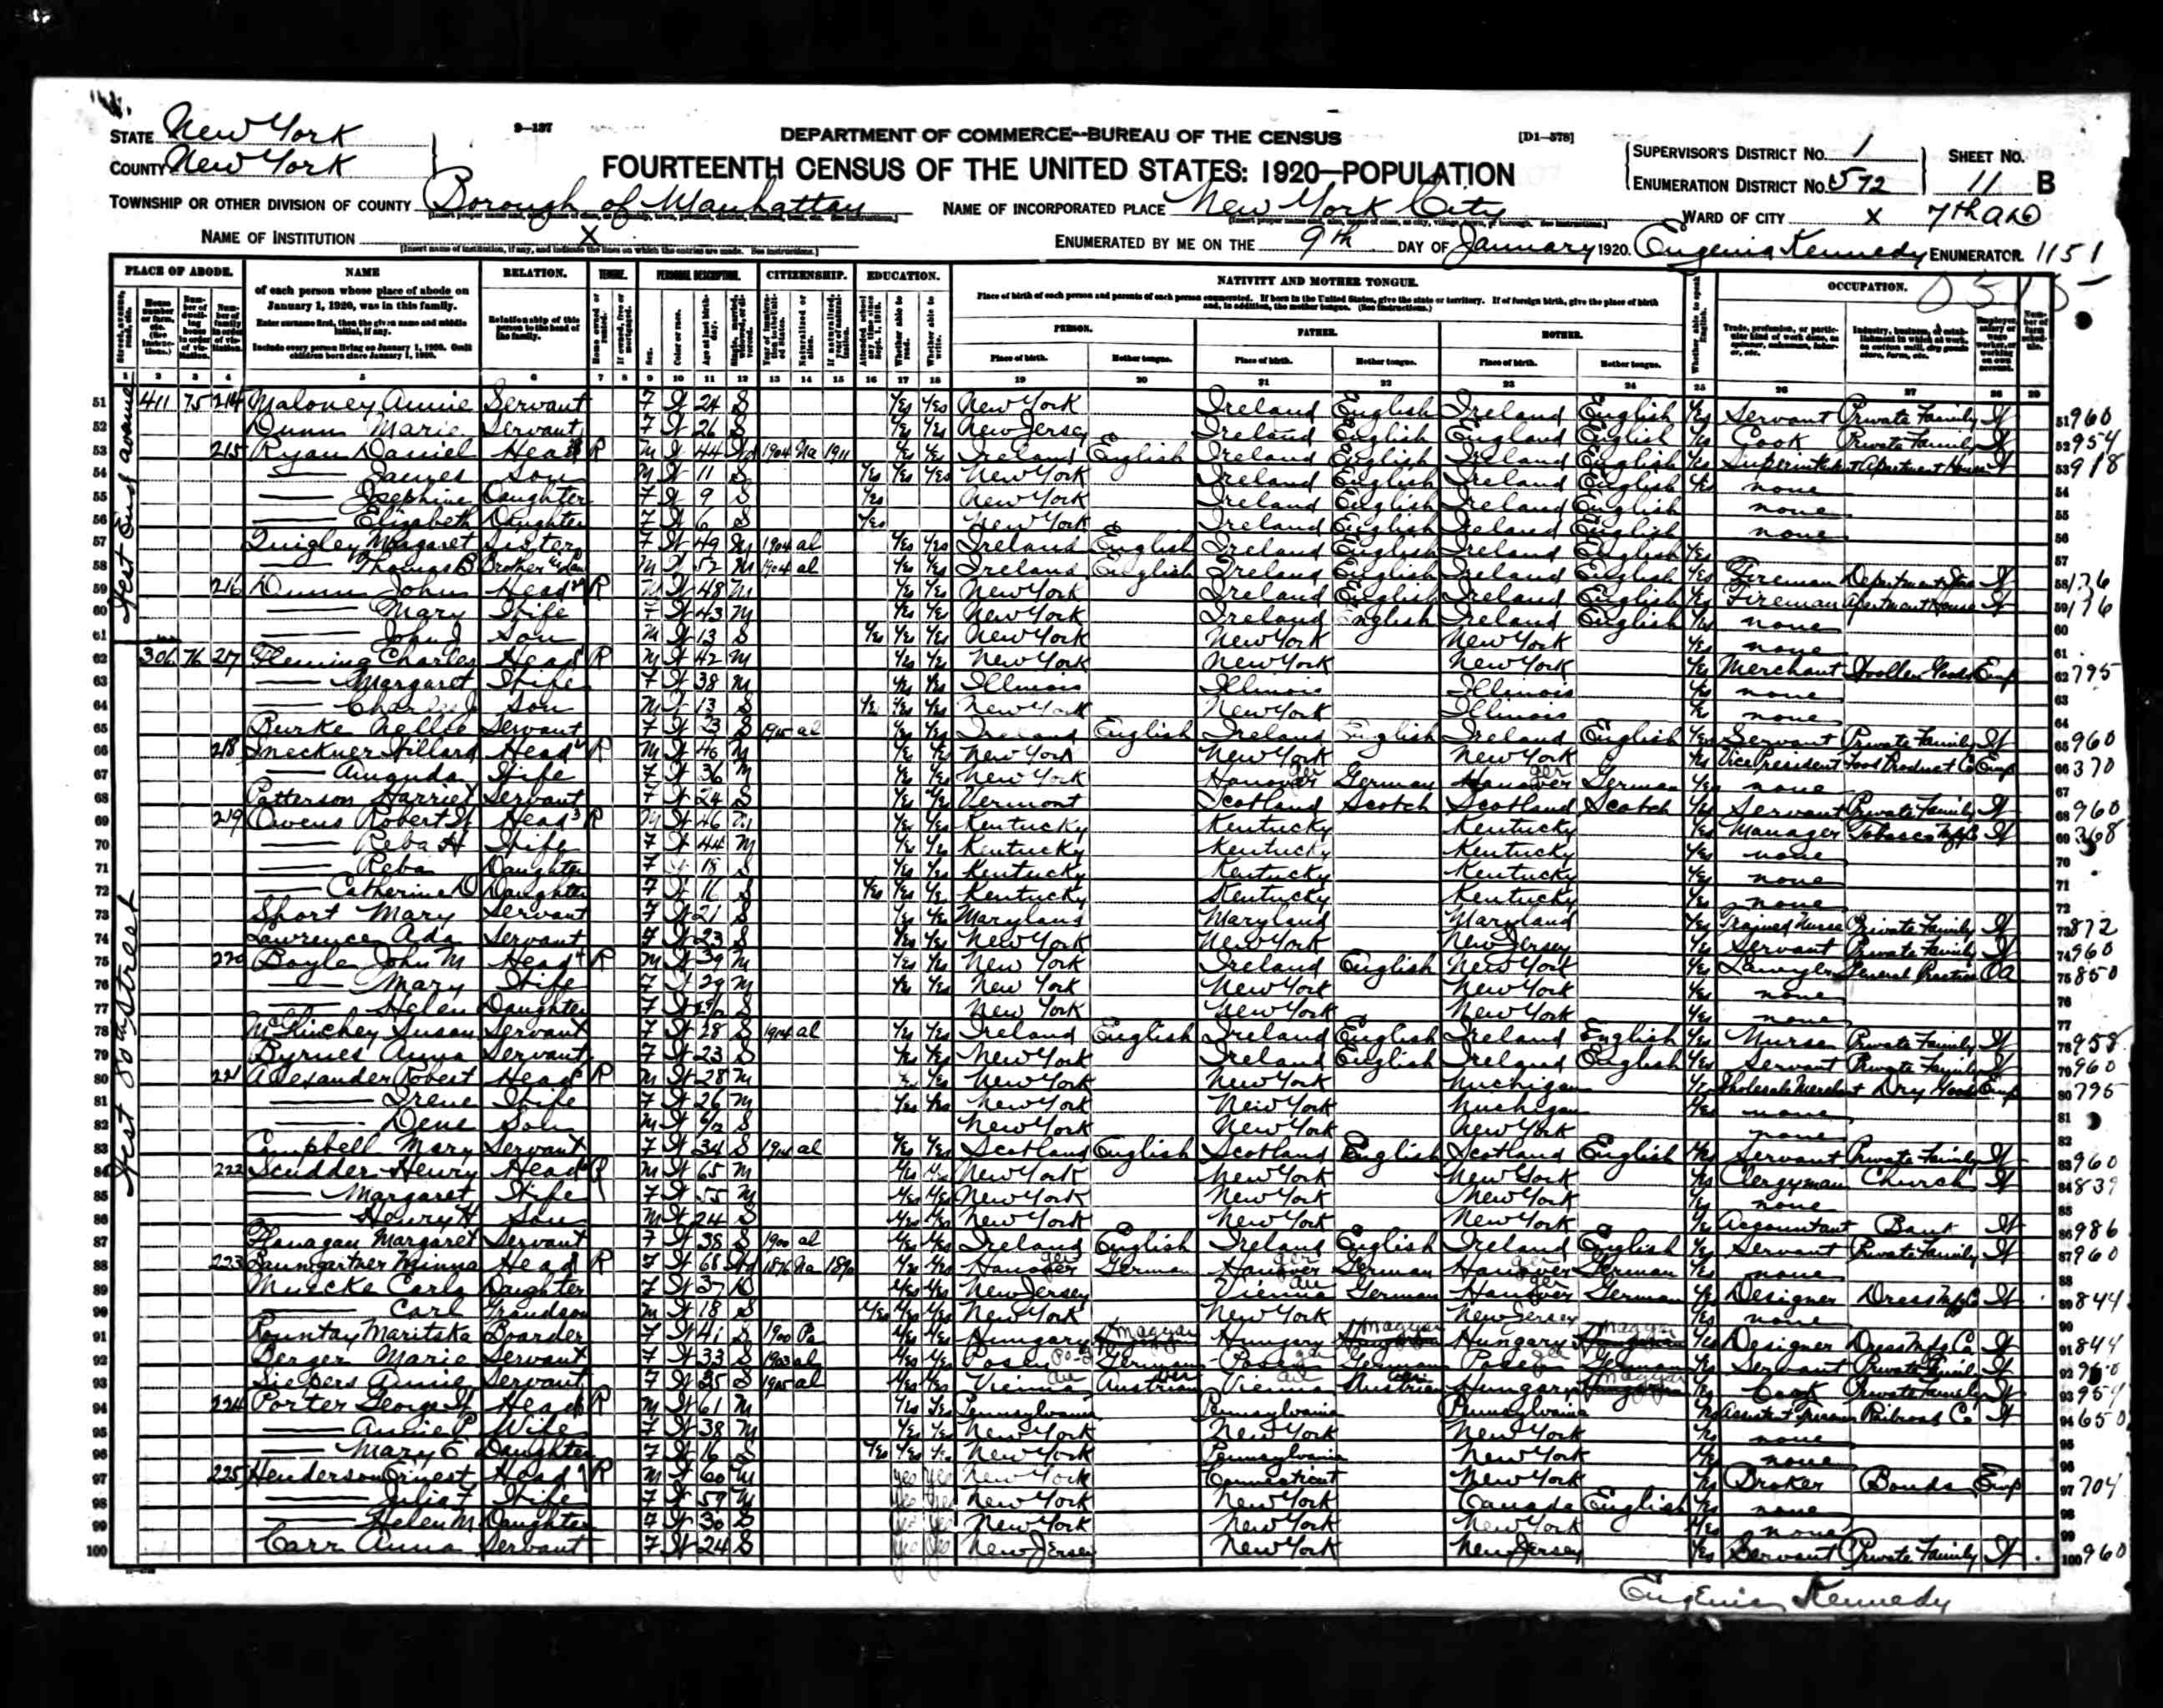 STATE New York
9-137
DEPARTMENT OF COMMERCE--BUREAU OF THE CENSUS
[D1-578]
COUNTY New York
FOURTEENTH CENSUS OF THE UNITED STATES: 1920—POPULATION
SUPERVISOR'S DISTRICT No. 1
SHEET No.
ENUMERATION DISTRICT No. 572
11 B
TOWNSHIP OR OTHER DIVISION OF COUNTY Borough of Manhattan
NAME OF INCORPORATED PLACE New York City
WARD OF CITY x 7th A.D
NAME OF INSTITUTION X
[Insert name of institution, if any, and indicate the lines on which the entries are made. See instructions.]
ENUMERATED BY ME ON THE 9th DAY OF January 1920. Eugenia Kennedy ENUMERATOR. 1151
PLACE OF ABODE. NAME RELATION. TENURE. PERSONAL DESCRIPTION. CITIZENSHIP. EDUCATION. NATIVITY AND MOTHER TONGUE. OCCUPATION.
of each person whose place of abode on January 1, 1920, was in this family.
Enter surname first, then the given name and middle initial, if any.
Include every person living on January 1, 1920. Omit children born since January 1, 1920.
Relationship of this person to the head of the family.
Place of birth of each person and parents of each person enumerated. If born in the United States, give the state or territory. If of foreign birth, give the place of birth and, in addition, the mother tongue. (See instructions.)
PERSON. FATHER. MOTHER.
Place of birth. Mother tongue. Place of birth. Mother tongue. Place of birth. Mother tongue.
1 2 3 4 5 6 7 8 9 10 11 12 13 14 15 16 17 18 19 20 21 22 23 24 25 26 27 28 29
West End Avenue
51 411 75 214 Maloney Annie Servant F W 24 S Yes Yes New York Ireland English Ireland English Yes Servant Private Family W 51 960
52 Dunn Marie Servant F W 26 S Yes Yes New Jersey Ireland English England English Yes Cook Private Family W 52 954
53 215 Ryan Daniel Head R M W 44 Wd 1904 Na 1911 Yes Yes Ireland English Ireland English Ireland English Yes Superintendent Apartment House W 53 918
54 — James Son M W 11 S Yes Yes Yes New York Ireland English Ireland English Yes none 54
55 — Josephine Daughter F W 9 S Yes New York Ireland English Ireland English none 55
56 — Elizabeth Daughter F W 6 S Yes New York Ireland English Ireland English none 56
57 Quigley Margaret Sister F W 49 M 1904 al Yes Yes Ireland English Ireland English Ireland English Yes 57
58 — Thomas B Brother in law M W 52 M 1904 al Yes Yes Ireland English Ireland English Ireland English Yes Fireman Department Store W 58 176
59 216 Dunn John Head R M W 48 M Yes Yes New York Ireland English Ireland English Yes Fireman Apartment House W 59 176
60 — Mary Wife F W 43 M Yes Yes New York Ireland English Ireland English Yes none 60
61 — John J Son M W 13 S Yes Yes Yes New York New York New York Yes none 61
West 80th Street
62 306 76 217 Fleming Charles Head R M W 42 M Yes Yes New York New York New York Yes Merchant Woollen Goods Emp 62 795
63 — Margaret Wife F W 38 M Yes Yes Illinois Illinois Illinois Yes none 63
64 — Charles J Son M W 13 S Yes Yes Yes New York New York Illinois Yes none 64
65 Burke Nellie Servant F W 23 S 1915 al Yes Yes Ireland English Ireland English Ireland English Yes Servant Private Family W 65 960
66 218 Meckner Willard Head R M W 46 M Yes Yes New York New York New York Yes Vice President Food Product Co Emp 66 370
67 — Amanda Wife F W 36 M Yes Yes New York Hanover Ger German Hanover Ger German Yes none 67
68 Patterson Harriet Servant F W 24 S Yes Yes Vermont Scotland Scotch Scotland Scotch Yes Servant Private Family W 68 960
69 219 Owens Robert W Head R M W 46 M Yes Yes Kentucky Kentucky Kentucky Yes Manager Tobacco Mfg W 69 368
70 — Reba H Wife F W 44 M Yes Yes Kentucky Kentucky Kentucky Yes none 70
71 — Reba Daughter F W 18 S Yes Yes Kentucky Kentucky Kentucky Yes none 71
72 — Catherine D Daughter F W 16 S Yes Yes Yes Kentucky Kentucky Kentucky Yes none 72
73 Short Mary Servant F W 21 S Yes Yes Maryland Maryland Maryland Yes Trained Nurse Private Family W 73 872
74 Lawrence Ada Servant F W 23 S Yes Yes New York New York New Jersey Yes Servant Private Family W 74 960
75 220 Boyle John M Head R M W 39 M Yes Yes New York Ireland English New York Yes Lawyer General Practice OA 75 850
76 — Mary Wife F W 29 M Yes Yes New York New York New York Yes none 76
77 — Helen Daughter F W S New York New York New York Yes none 77
78 McGlinchey Susan Servant F W 28 S 1914 al Yes Yes Ireland English Ireland English Ireland English Yes Nurse Private Family W 78 958
79 Byrnes Anna Servant F W 23 S Yes Yes New York Ireland English Ireland English Yes Servant Private Family W 79 960
80 221 Alexander Robert Head R M W 28 M Yes Yes New York New York Michigan Yes Wholesale Merchant Dry Goods Emp 80 795
81 — Irene Wife F W 26 M Yes Yes New York New York Michigan Yes none 81
82 — Dene Son M W S New York New York New York none 82
83 Campbell Mary Servant F W 34 S 1914 al Yes Yes Scotland English Scotland English Scotland English Yes Servant Private Family W 83 960
84 222 Scudder Henry Head R M W 65 M Yes Yes New York New York New York Yes Clergyman Church W 84 839
85 — Margaret Wife F W 55 M Yes Yes New York New York New York Yes none 85
86 — Henry H Son M W 24 S Yes Yes New York New York New York Yes Accountant Bank W 86 986
87 Flanagan Margaret Servant F W 38 S 1900 al Yes Yes Ireland English Ireland English Ireland English Yes Servant Private Family W 87 960
88 223 Baumgartner Minna Head R F W 68 Wd 1876 Na 1890 Yes Yes Hanover Ger German Hanover Ger German Hanover Ger German Yes none 88
89 Muecke Carla Daughter F W 37 D Yes Yes New Jersey Vienna Au German Hanover Ger German Yes Designer Dress Mfg Co W 89 844
90 — Carl Grandson M W 18 S Yes Yes Yes New York New York New Jersey Yes none 90
91 Rountay Maritska Boarder F W 41 S 1900 Pa Yes Yes Hungary Magyar Hungary Magyar Hungary Magyar Yes Designer Dress Mfg Co W 91 844
92 Berger Marie Servant F W 33 S 1903 al Yes Yes Posen German Posen German Posen German Yes Servant Private Family W 92 960
93 Siebers Annie Servant F W 25 S 1915 al Yes Yes Vienna Au Austrian Vienna Au Austrian Hungary Magyar Yes Cook Private Family W 93 954
94 224 Porter George W Head R M W 61 M Yes Yes Pennsylvania Pennsylvania Pennsylvania Yes Railroad Co W 94 650
95 — Annie P Wife F W 38 M Yes Yes New York New York New York Yes none 95
96 — Mary E Daughter F W 16 S Yes Yes Yes New York Pennsylvania New York Yes none 96
97 225 Henderson Ernest Head R M W 60 M Yes Yes New York Connecticut New York Yes Broker Bonds Emp 97 704
98 — Julia F Wife F W 59 M Yes Yes New York New York Canada English Yes none 98
99 — Helen M Daughter F W 30 S Yes Yes New York New York New York Yes none 99
100 Carr Anna Servant F W 24 S Yes Yes New Jersey New York New Jersey Yes Servant Private Family W 100 960
Eugenia Kennedy